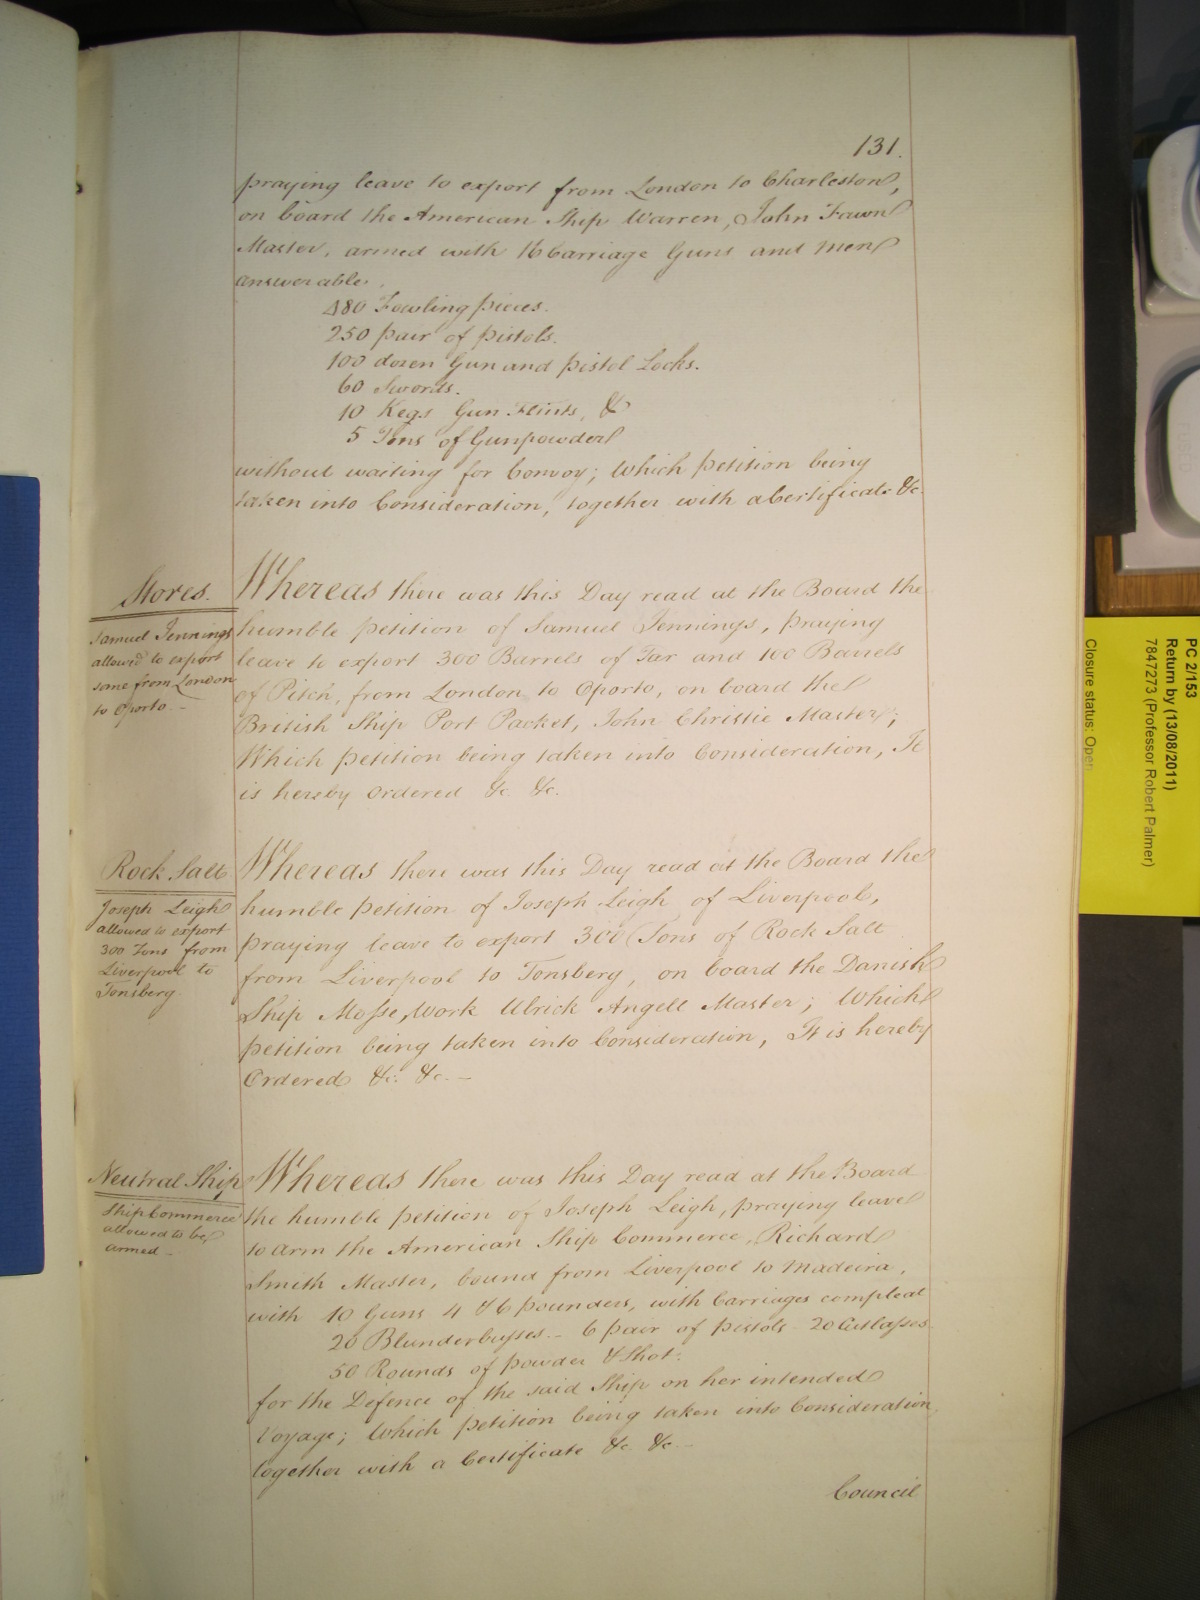 131.
praying leave to export from London to Charleston,
on board the American Ship Warren, John Fawn
Master, armed with 16 Carriage Guns and Men
answerable.
480 Fowling pieces.
250 pair of pistols.
100 dozen Gun and pistol Locks.
60 Swords.
10 Kegs Gun Flints, &
5 Tons of Gunpowder
without waiting for Convoy; Which petition being
taken into Consideration, together with a Certificate &c.
Stores.
Samuel Jennings
allowed to export
some from London
to Oporto. -
Whereas there was this Day read at the Board the
humble petition of Samuel Jennings, praying
leave to export 300 Barrels of Tar and 100 Barrels
of Pitch, from London to Oporto, on board the
British Ship Port Packet, John Christie Master;
Which petition being taken into Consideration, It
is hereby Ordered &c. &c.
Rock Salt
Joseph Leigh
allowed to export
300 Tons from
Liverpool to
Tonsberg.
Whereas there was this Day read at the Board the
humble petition of Joseph Leigh of Liverpool,
praying leave to export 300 Tons of Rock Salt
from Liverpool to Tonsberg, on board the Danish
Ship Mosse, Work Ulrick Angell Master; Which
petition being taken into Consideration, It is hereby
Ordered &c. &c. -
Neutral Ship
Ship Commerce
allowed to be
armed -
Whereas there was this Day read at the Board
the humble petition of Joseph Leigh, praying leave
to arm the American Ship Commerce, Richard
Smith Master, bound from Liverpool to Madeira,
with 10 Guns 4 & 6 pounders, with Carriages compleat
20 Blunderbusses. - 6 pair of pistols - 20 Cutlasses.
50 Rounds of powder & Shot.
for the Defence of the said Ship on her intended
Voyage; Which petition being taken into Consideration,
together with a Certificate &c. &c. -
Council
PC 2/153
Return by (13/08/2011)
7847273 (Professor Robert Palmer)
Closure status: Open